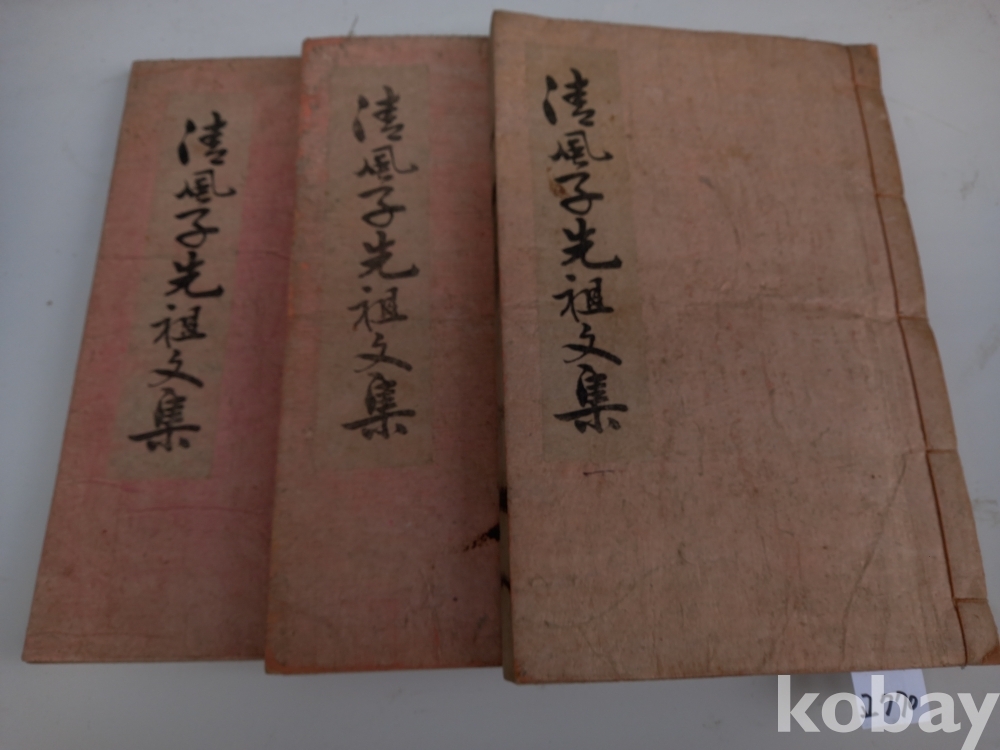 清風子先祖文集
清風子先祖文集
清風子先祖文集
一
2770
kobay